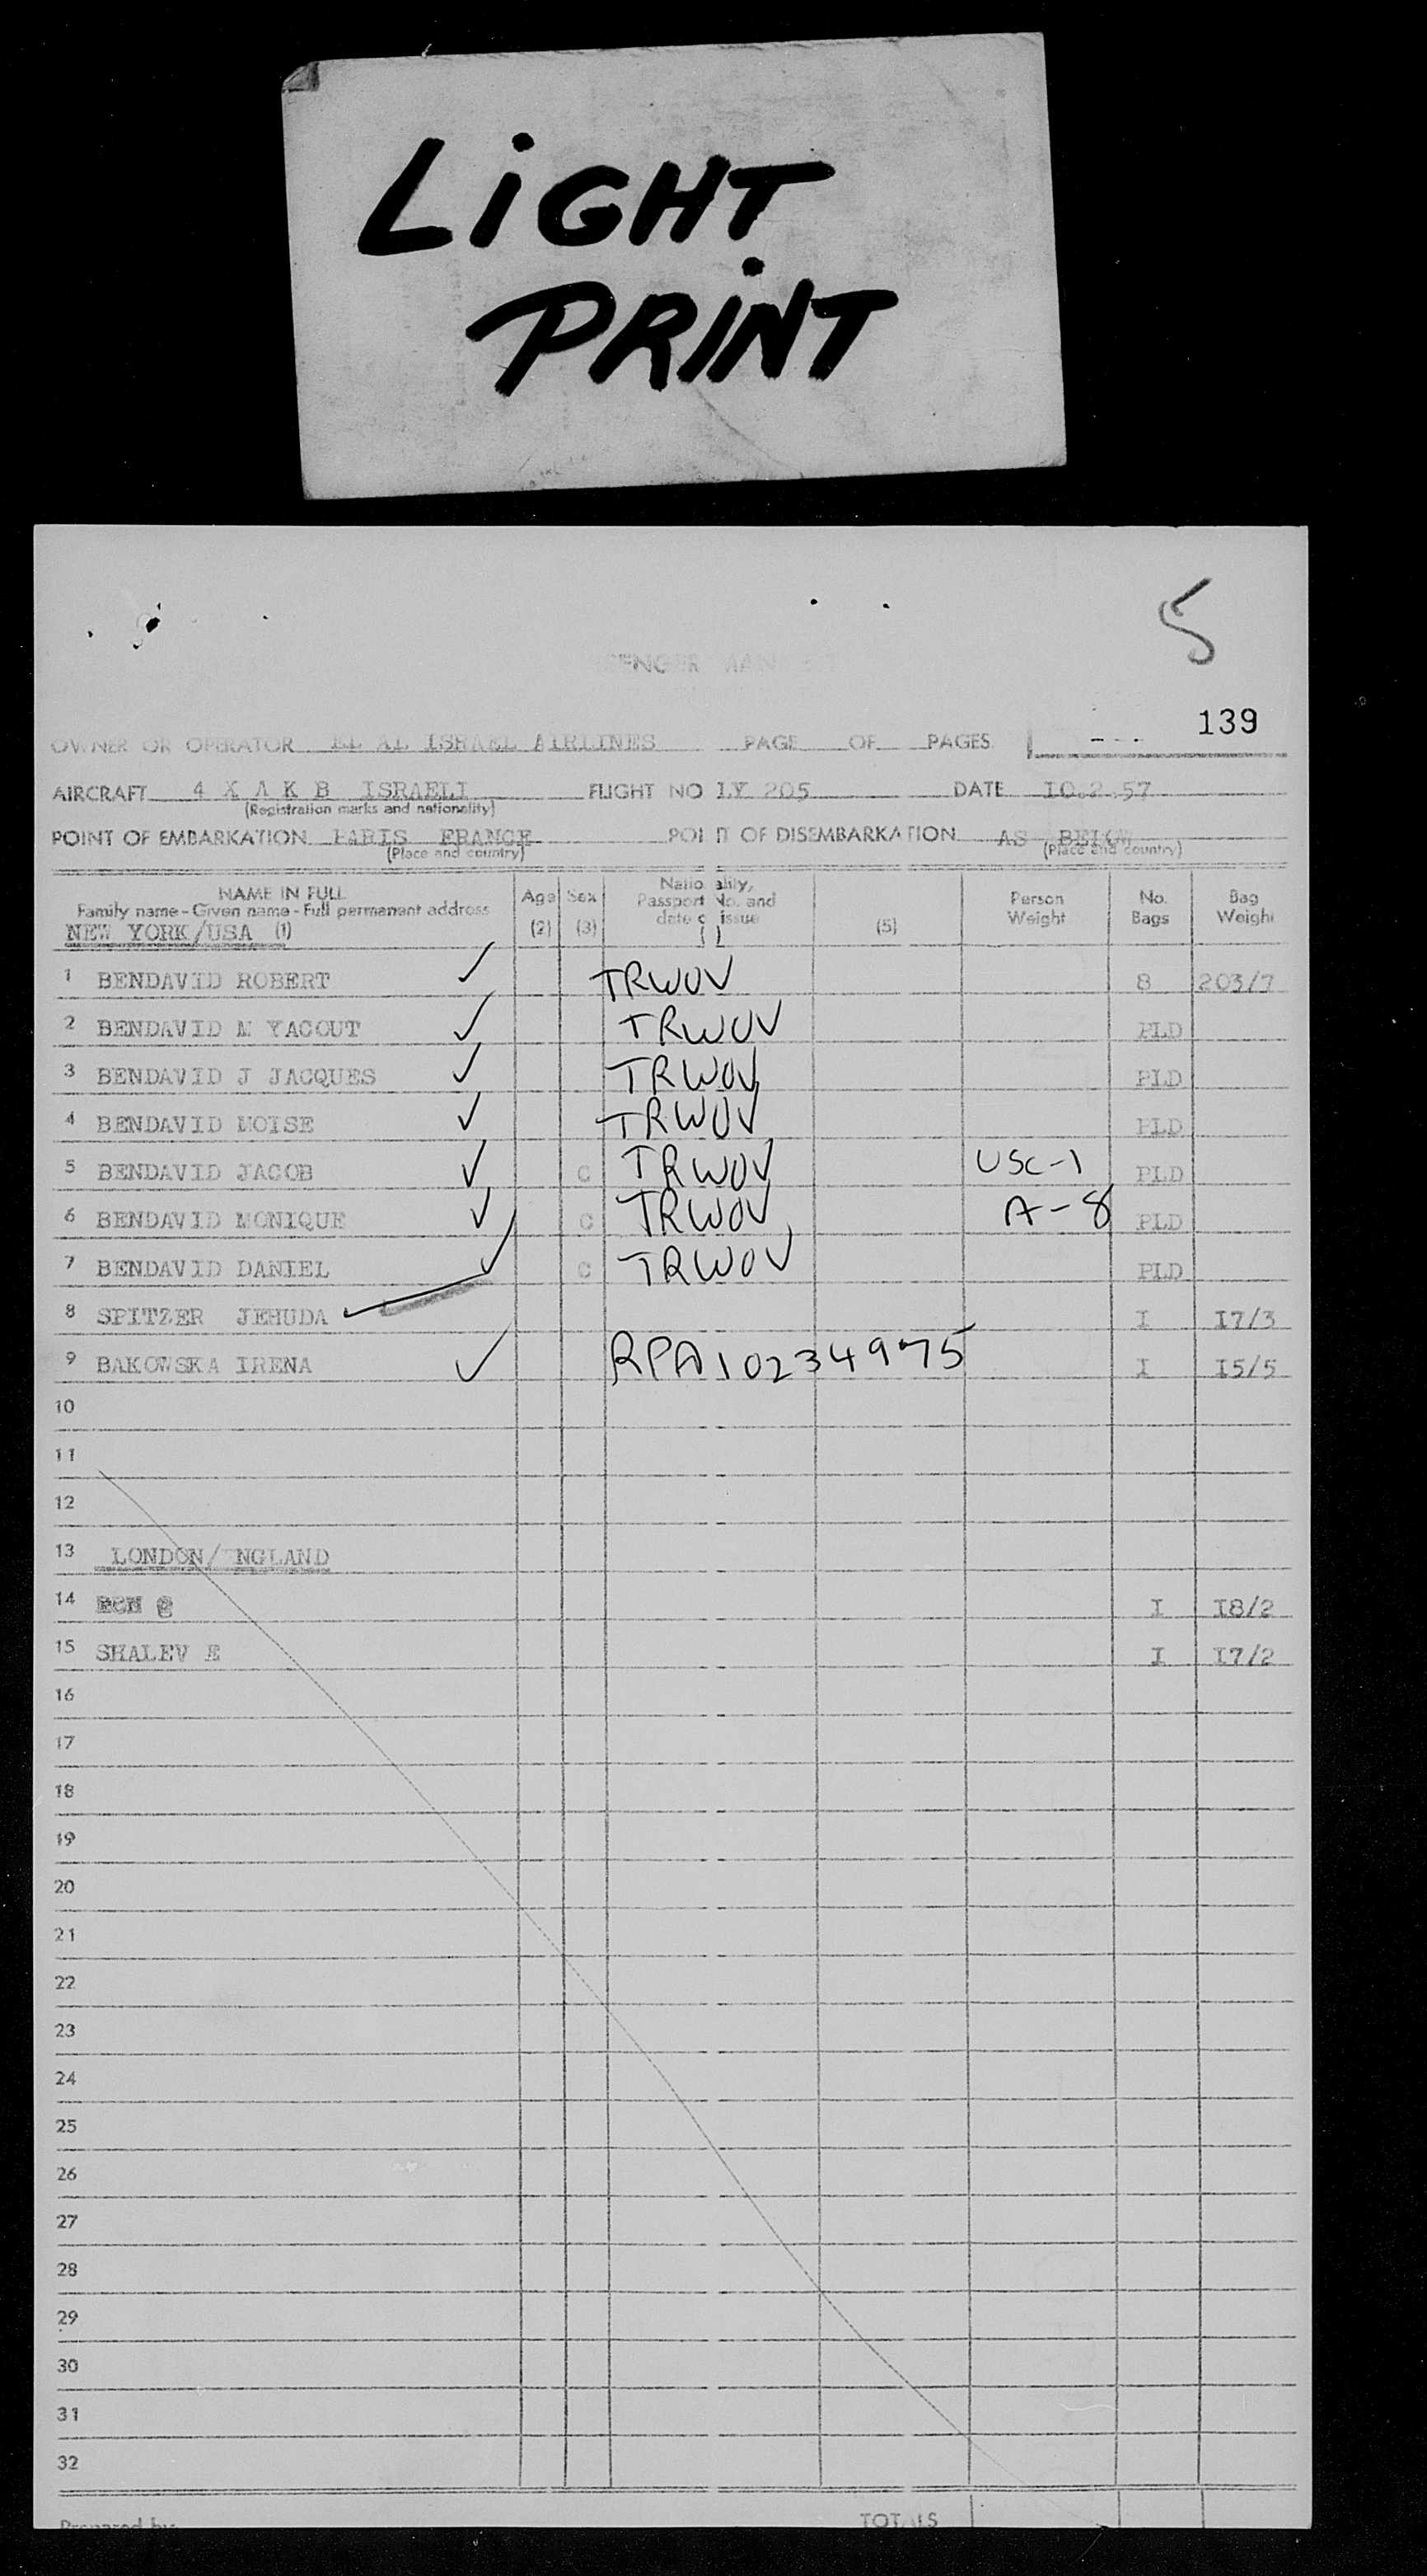 LiGHT
PRiNT
5
139
OWNER OR OPERATOR EL AL ISRAEL AIRLINES PAGE OF PAGES
AIRCRAFT 4 X A K B ISRAELI FLIGHT NO LY 205 DATE IO.2.57
(Registration marks and nationality)
POINT OF EMBARKATION PARIS FRANCE POINT OF DISEMBARKATION AS BELOW
(Place and country) (Place and country)
NAME IN FULL Age Sex Nationality, Person No. Bag
Family name - Given name - Full permanent address Passport No. and Weight Bags Weight
date of issue
NEW YORK/USA (1) (2) (3) (5)
1 BENDAVID ROBERT TRWOV 8 203/7
2 BENDAVID M YACOUT TRWOV PLD
3 BENDAVID J JACQUES TRWOV PLD
4 BENDAVID MOISE TRWOV PLD
5 BENDAVID JACOB C TRWOV USC-1 PLD
6 BENDAVID MONIQUE C TRWOV A-8 PLD
7 BENDAVID DANIEL C TRWOV PLD
8 SPITZER JEHUDA I I7/3
9 BAKOWSKA IRENA RPA10234975 I I5/5
10
11
12
13 LONDON/ NGLAND
14 I I8/2
15 SHALEV E I I7/2
16
17
18
19
20
21
22
23
24
25
26
27
28
29
30
31
32
Prepared by TOTALS